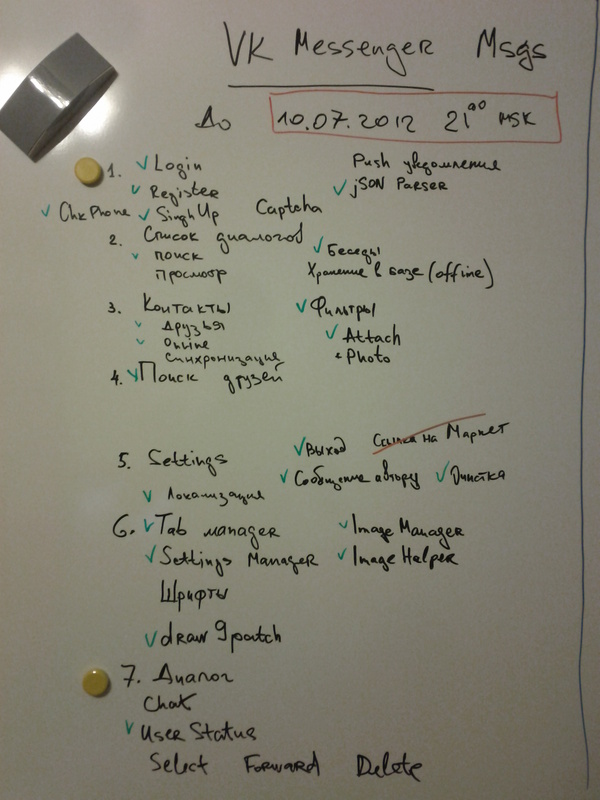 VK Messenger Msgs
До 10.07.2012 21 00 MSK
1. Login Push уведомления
Register JSON Parser
ChkPhone SinghUp Captcha
2. Список диалогов Беседы
поиск
просмотр Хранение в базе (offline)
3. Контакты Фильтры
Друзья Attach
Online Photo
синхронизация
4. Поиск друзей
5. Settings Выход Ссылка на Маркет
Локализация Сообщение автору Очистка
6. Tab manager Image Manager
Settings Manager Image Helper
Шрифты
draw 9patch
7. Диалог
Chat
User Status
Select Forward Delete